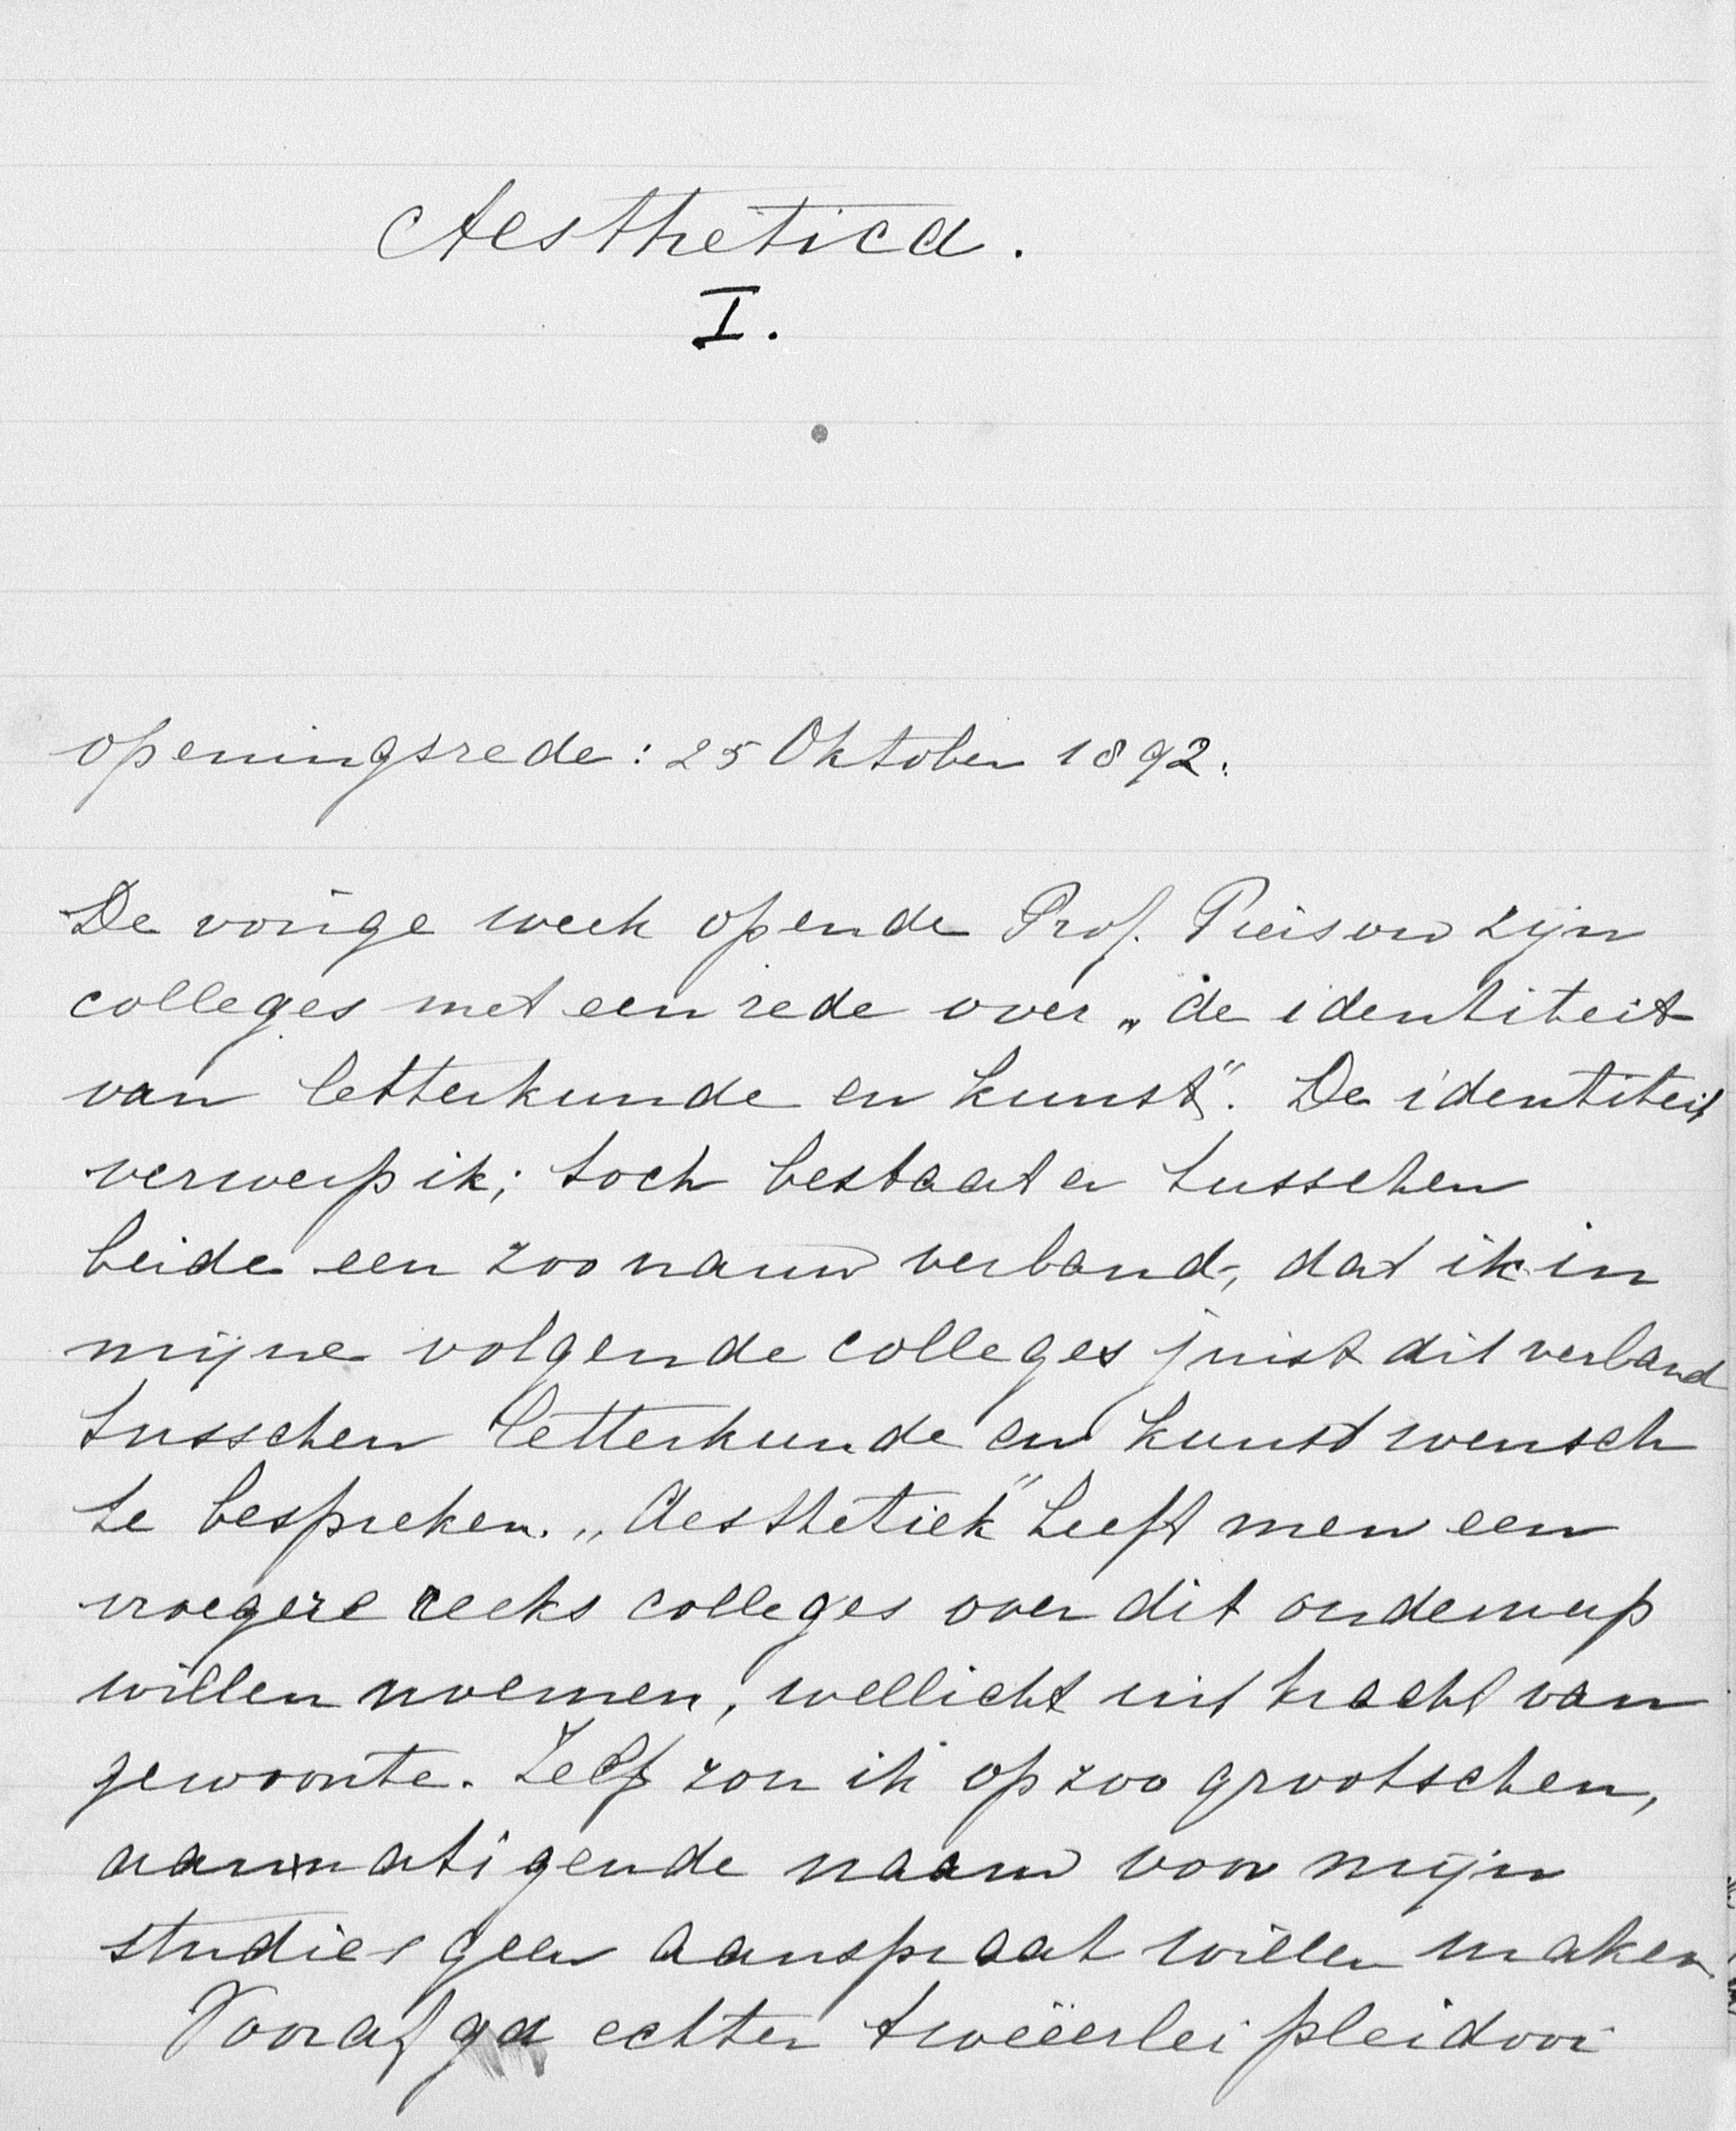 Aesthetica.
I.
openingsrede: 25 Oktober 1892.
De vorige week opende Prof. Pierson zijn
colleges met een rede over „de identiteit
van letterkunde en kunst". De identiteit
verwerp ik; toch bestaat er tusschen
beide een zoo nauw verband, dat ik in
mijne volgende colleges juist dit verband
tusschen letterkunde en kunst wensch
te bespreken. „Aesthetiek" heeft men een
vroegere reeks colleges over dit onderwerp
willen noemen, wellicht uit kracht van
gewoonte. Zelf zou ik op zoo grootschen,
aanmatigende naam voor mijn
studies geen aanspraak willen maken
Vooraf ga echter tweëerlei pleidooi